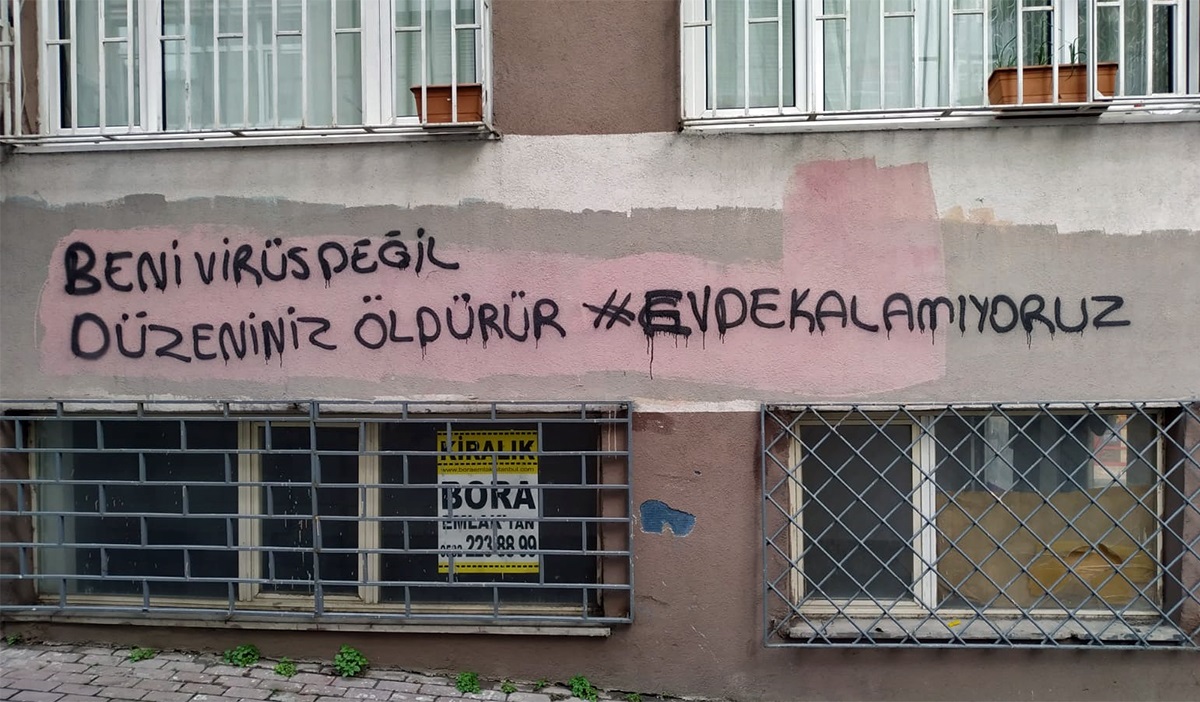 BENİ VİRÜS DEĞİL
DÜZENİNİZ ÖLDÜRÜR #EVDEKALAMIYORUZ
KİRALIK
BORA
EMLAK'TAN
223 88 99